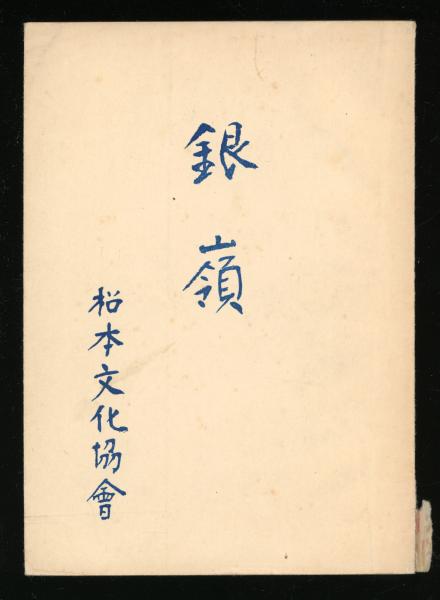 銀嶺
松本文化協會